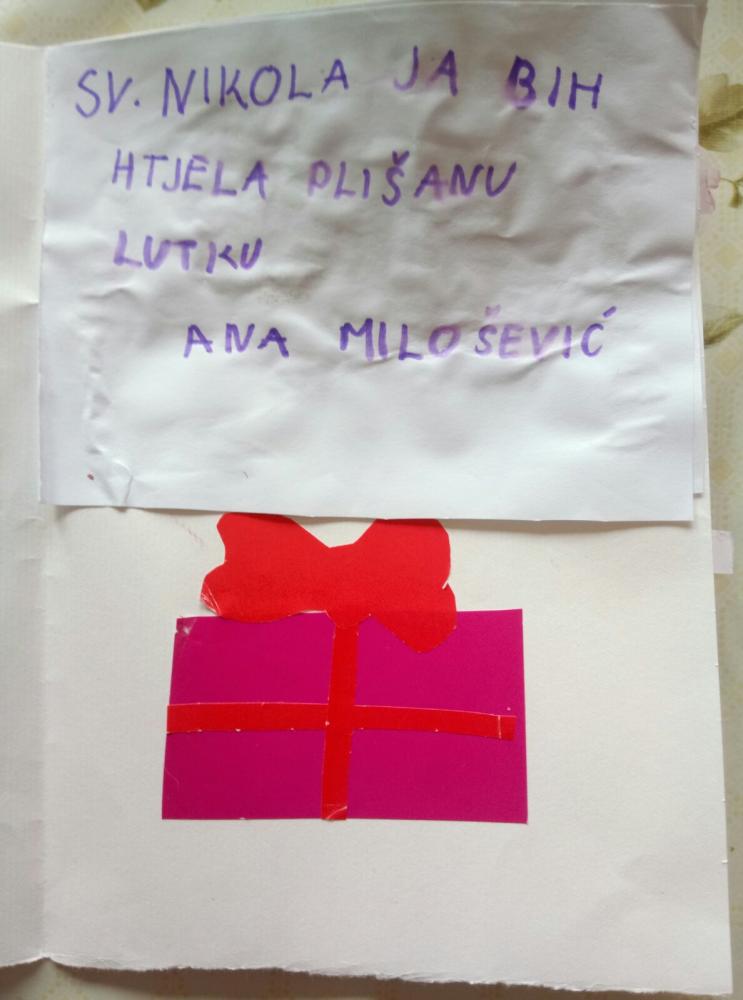 SV. NIKOLA JA BIH
HTJELA PLIŠANU
LUTKU
ANA MILOŠEVIĆ